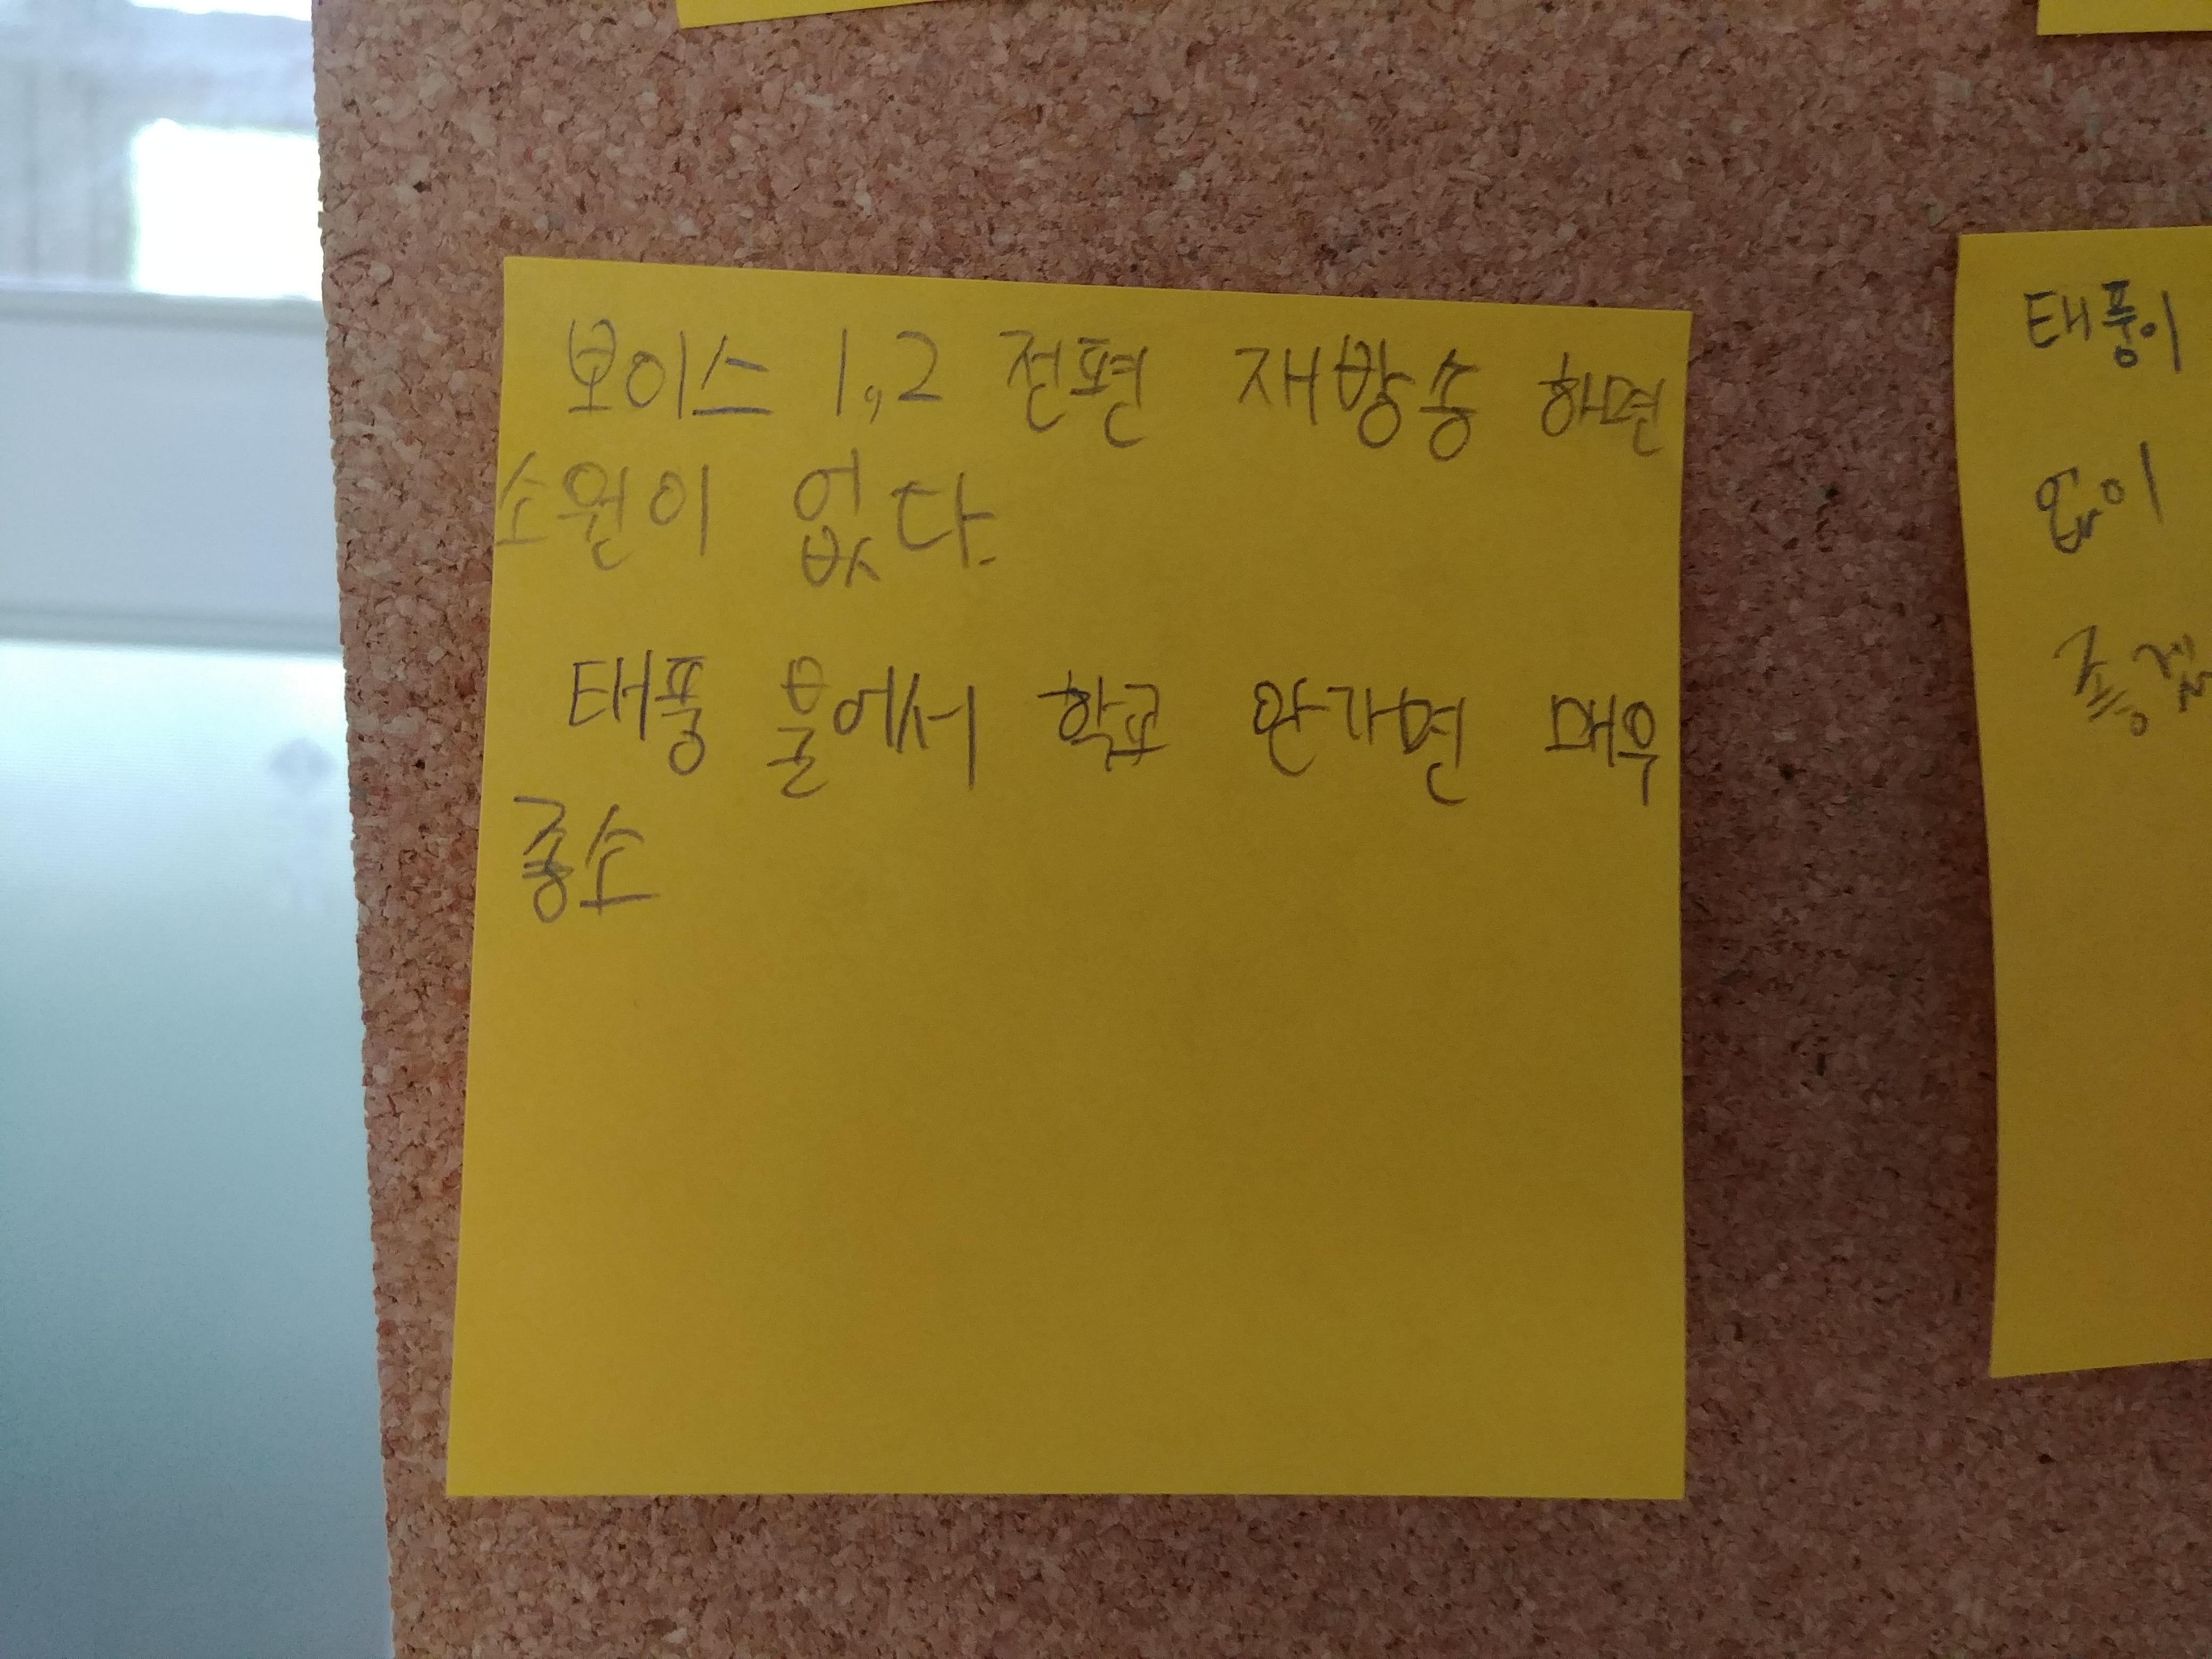 보이스 1,2 전편 재방송 하면
소원이 없다.
태풍 불어서 학교 안가면 매우
좋소
태풍이
없이